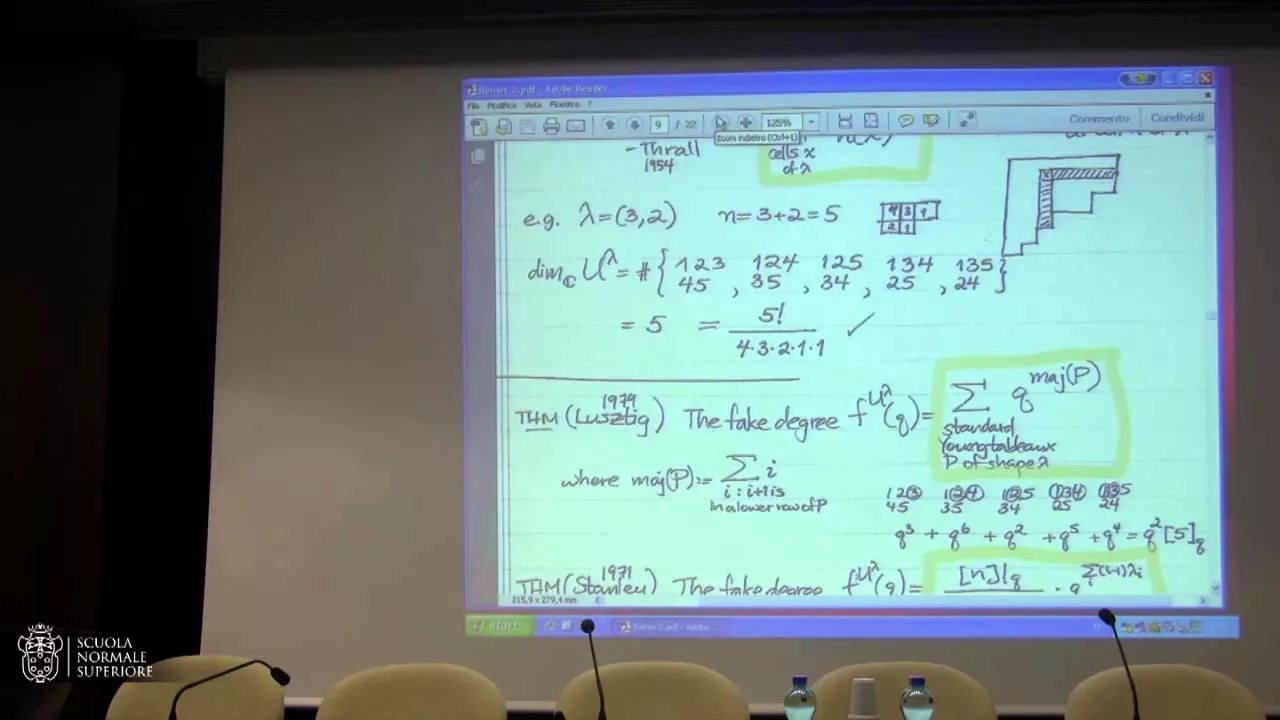 Reiner 2.pdf - Adobe Reader
File Modifica Vista Finestra ?
9 / 22 125% Commento Condividi
Zoom indietro (Ctrl+1)
- Thrall
1954
cells x
of λ
e.g. λ=(3,2) n=3+2=5
4 3 1
2 1
dim_ℂ U^λ = # { 123 , 124 , 125 , 134 , 135 }
45 35 34 25 24
= 5 = 5! / 4·3·2·1·1 ✓
THM (Lusztig 1979) The fake degree f^{U^λ}(q) = Σ q^{maj(P)}
standard
Young tableaux
P of shape λ
where maj(P) := Σ i
i : i+1 is
in a lower row of P
123 124 125 134 135
45 35 34 25 24
q^3 + q^6 + q^2 + q^5 + q^4 = q^2 [5]_q
THM (Stanley 1971) The fake degree f^{U^λ}(q) = [n]!_q · q^{Σ_i (i-1)λ_i}
215,9 x 279,4 mm
start
Reiner 2.pdf - Adobe...
SCUOLA
NORMALE
SUPERIORE